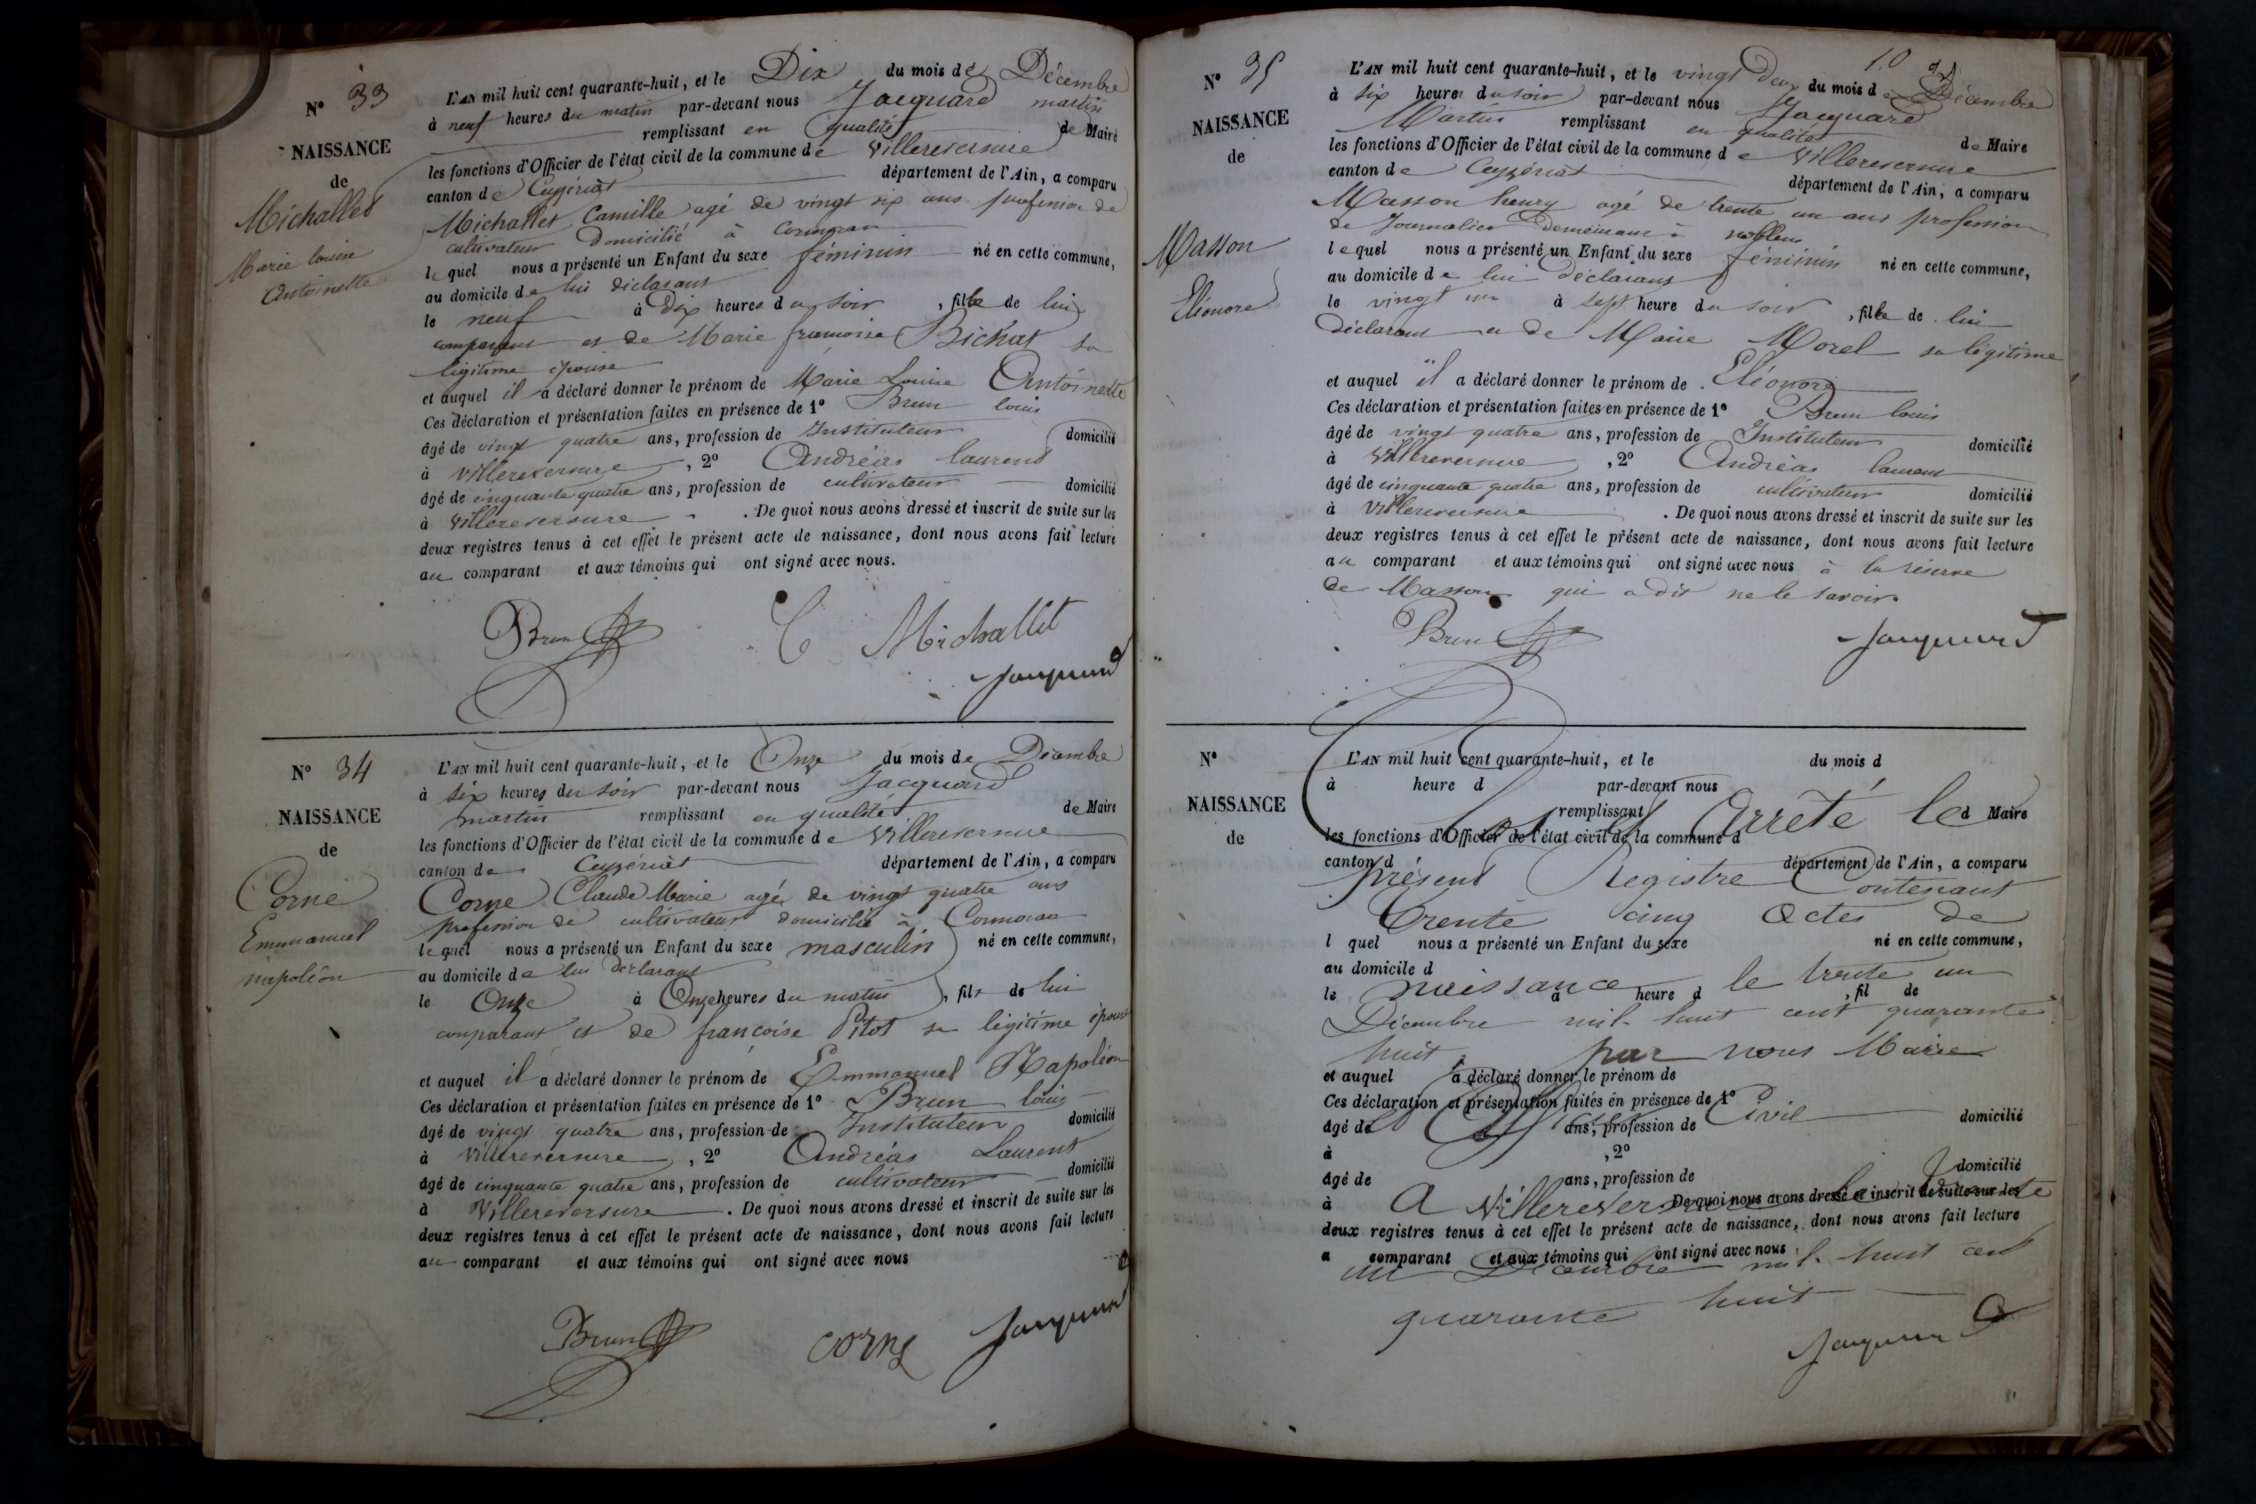 N° 33
NAISSANCE
de
Michallet
Marie louise
Antoinette
L'AN mil huit cent quarante-huit, et le Dix du mois de Décembre
à neuf heures du matin par-devant nous Jacquard martin
remplissant en qualité de Maire
les fonctions d'Officier de l'état civil de la commune de Villereversure
canton de Ceyzériat département de l'Ain, a comparu
Michallet Camille agé de vingt six ans profession de
cultivateur domicilié à Cormoran
lequel nous a présenté un Enfant du sexe féminin né en cette commune,
au domicile de lui déclarant
le neuf à Dix heures du soir, fille de lui
comparant et de Marie francoise Bichat sa
légitime épouse
et auquel il a déclaré donner le prénom de Marie Louise Antoinette
Ces déclaration et présentation faites en présence de 1° Brun louis
âgé de vingt quatre ans, profession de Instituteur domicilié
à Villereversure, 2° Andréas laurend
âgé de cinquante quatre ans, profession de cultivateur domicilié
à Villereversure. De quoi nous avons dressé et inscrit de suite sur les
deux registres tenus à cet effet le présent acte de naissance, dont nous avons fait lecture
au comparant et aux témoins qui ont signé avec nous.
Brun C Michallet
Jacquard
N° 34
NAISSANCE
de
Corne
Emmanuel
napoléon
L'AN mil huit cent quarante-huit, et le Onze du mois de Décembre
à six heures du soir par-devant nous Jacquard
martin remplissant en qualité de Maire
les fonctions d'Officier de l'état civil de la commune de Villereversure
canton de Ceyzériat département de l'Ain, a comparu
Corne Claude Marie agé de vingt quatre ans
profession de cultivateur domicilié à Cormoran
lequel nous a présenté un Enfant du sexe masculin né en cette commune,
au domicile de lui déclarant
le Onze à Onze heures du matin, fils de lui
comparant et de françoise Pitot sa légitime épouse
et auquel il a déclaré donner le prénom de Emmanuel Napoléon
Ces déclaration et présentation faites en présence de 1° Brun louis
âgé de vingt quatre ans, profession de Instituteur domicilié
à Villereversure, 2° Andréas Laurent
âgé de cinquante quatre ans, profession de cultivateur domicilié
à Villereversure. De quoi nous avons dressé et inscrit de suite sur les
deux registres tenus à cet effet le présent acte de naissance, dont nous avons fait lecture
au comparant et aux témoins qui ont signé avec nous
Brun corne Jacquard
10
N° 35
NAISSANCE
de
Masson
Eléonore
L'AN mil huit cent quarante-huit, et le vingt deux du mois de Décembre
à six heures du soir par-devant nous Jacquard
Martin remplissant en qualité de Maire
les fonctions d'Officier de l'état civil de la commune de Villereversure
canton de Ceyzériat département de l'Ain, a comparu
Masson henry agé de trente un ans profession
de Journalier Demeurant à noblens
lequel nous a présenté un Enfant du sexe féminin né en cette commune,
au domicile de lui déclarant
le vingt un à sept heure du soir, fille de lui
déclarant et de Marie Morel sa légitime
et auquel il a déclaré donner le prénom de Eléonore
Ces déclaration et présentation faites en présence de 1° Brun louis
âgé de vingt quatre ans, profession de Instituteur domicilié
à Villereversure, 2° Andréas laurent
âgé de cinquante quatre ans, profession de cultivateur domicilié
à Villereversure. De quoi nous avons dressé et inscrit de suite sur les
deux registres tenus à cet effet le présent acte de naissance, dont nous avons fait lecture
au comparant et aux témoins qui ont signé avec nous à la réserve
de Masson qui a dit ne le savoir
Brun Jacquard
N°
NAISSANCE
de
L'AN mil huit cent quarante-huit, et le du mois d
à heure d par-devant nous
remplissant d Maire
Clos et Arrêté le
les fonctions d'Officier de l'état civil de la commune d
canton d département de l'Ain, a comparu
présent Registre Contenant
trente cinq Actes de
l quel nous a présenté un Enfant du sexe né en cette commune,
au domicile d
naissance le trente un
le à heure d, fil de
Décembre mil huit cent quarante
huit par nous Maire
et auquel a déclaré donner le prénom de
Ces déclaration et présentation faites en présence de 1°
Civil
âgé de ans, profession de domicilié
à, 2°
âgé de ans, profession de domicilié
A Villereversure le trente
à De quoi nous avons dressé et inscrit de suite sur les
deux registres tenus à cet effet le présent acte de naissance, dont nous avons fait lecture
a comparant et aux témoins qui ont signé avec nous
un Décembre mil huit cent
quarante huit
Jacquard